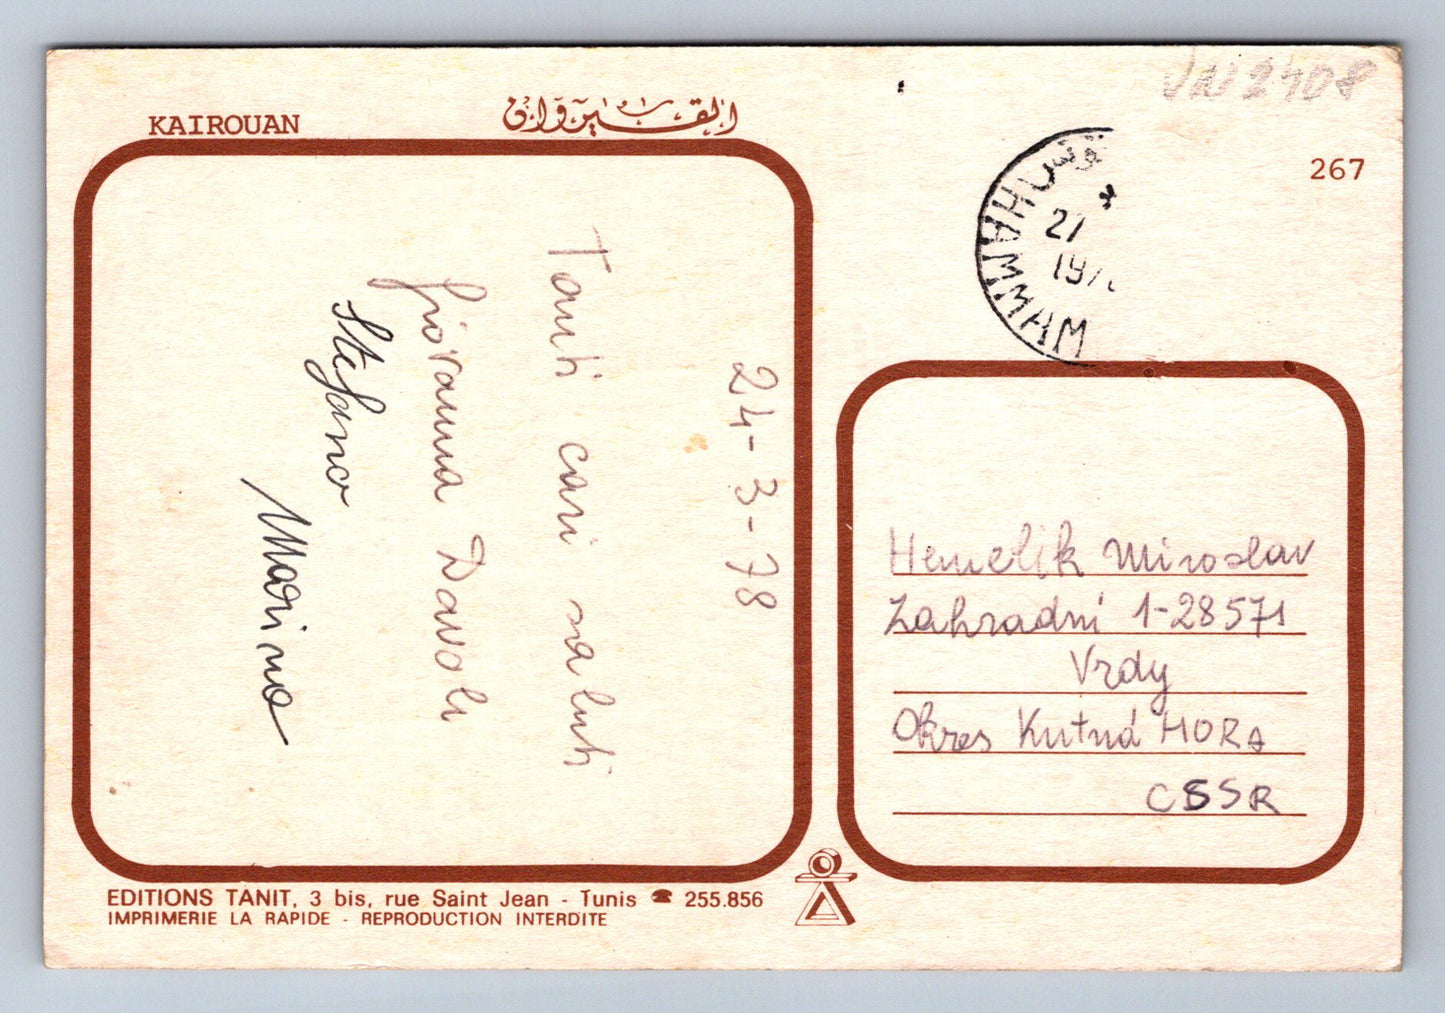 KAIROUAN
القيروان
24-3-78
Tanti cari saluti
Giovanna Davoli
Stefano
Marino
EDITIONS TANIT, 3 bis, rue Saint Jean - Tunis ☎ 255.856
IMPRIMERIE LA RAPIDE - REPRODUCTION INTERDITE
VN 2408
267
HAMMAM
27
197
Hemelik Miroslav
Zahradní 1-28571
Vrdy
Okres Kutná HORA
CSSR